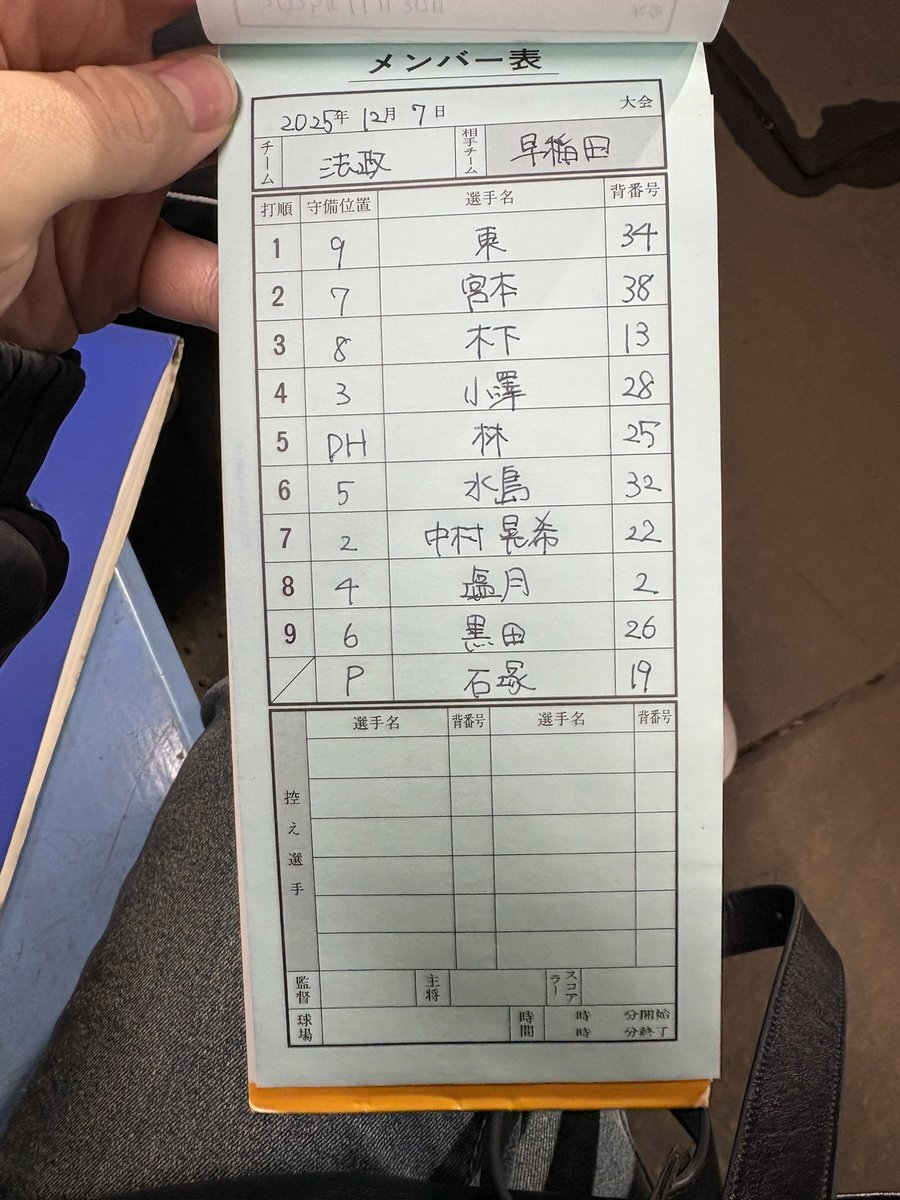 メンバー表
2025年 12月 7日 大会
チーム 法政 相手チーム 早稲田
打順 守備位置 選手名 背番号
1 9 東 34
2 7 宮本 38
3 8 木下 13
4 3 小澤 28
5 DH 林 25
6 5 水島 32
7 2 中村 晃希 22
8 4 塩月 2
9 6 黒田 26
P 石塚 19
選手名 背番号 選手名 背番号
控え選手
監督 主将 スコアラー
球場 時間 時 分開始
時 分終了